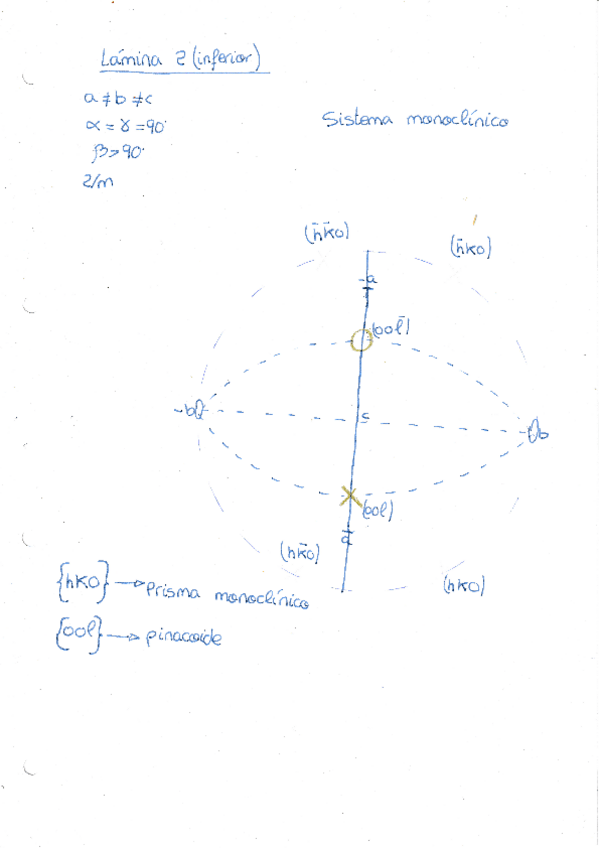 Lámina 2 (inferior)
a ≠ b ≠ c
α = γ = 90°
Sistema monoclínico
β > 90°
2/m
(h̄k̄0)
(h̄k0)
-a
(00l̄)
-b
c
b
(00l)
a
(hk̄0)
(hk0)
{hk0} → Prisma monoclínico
{00l} → pinacoide